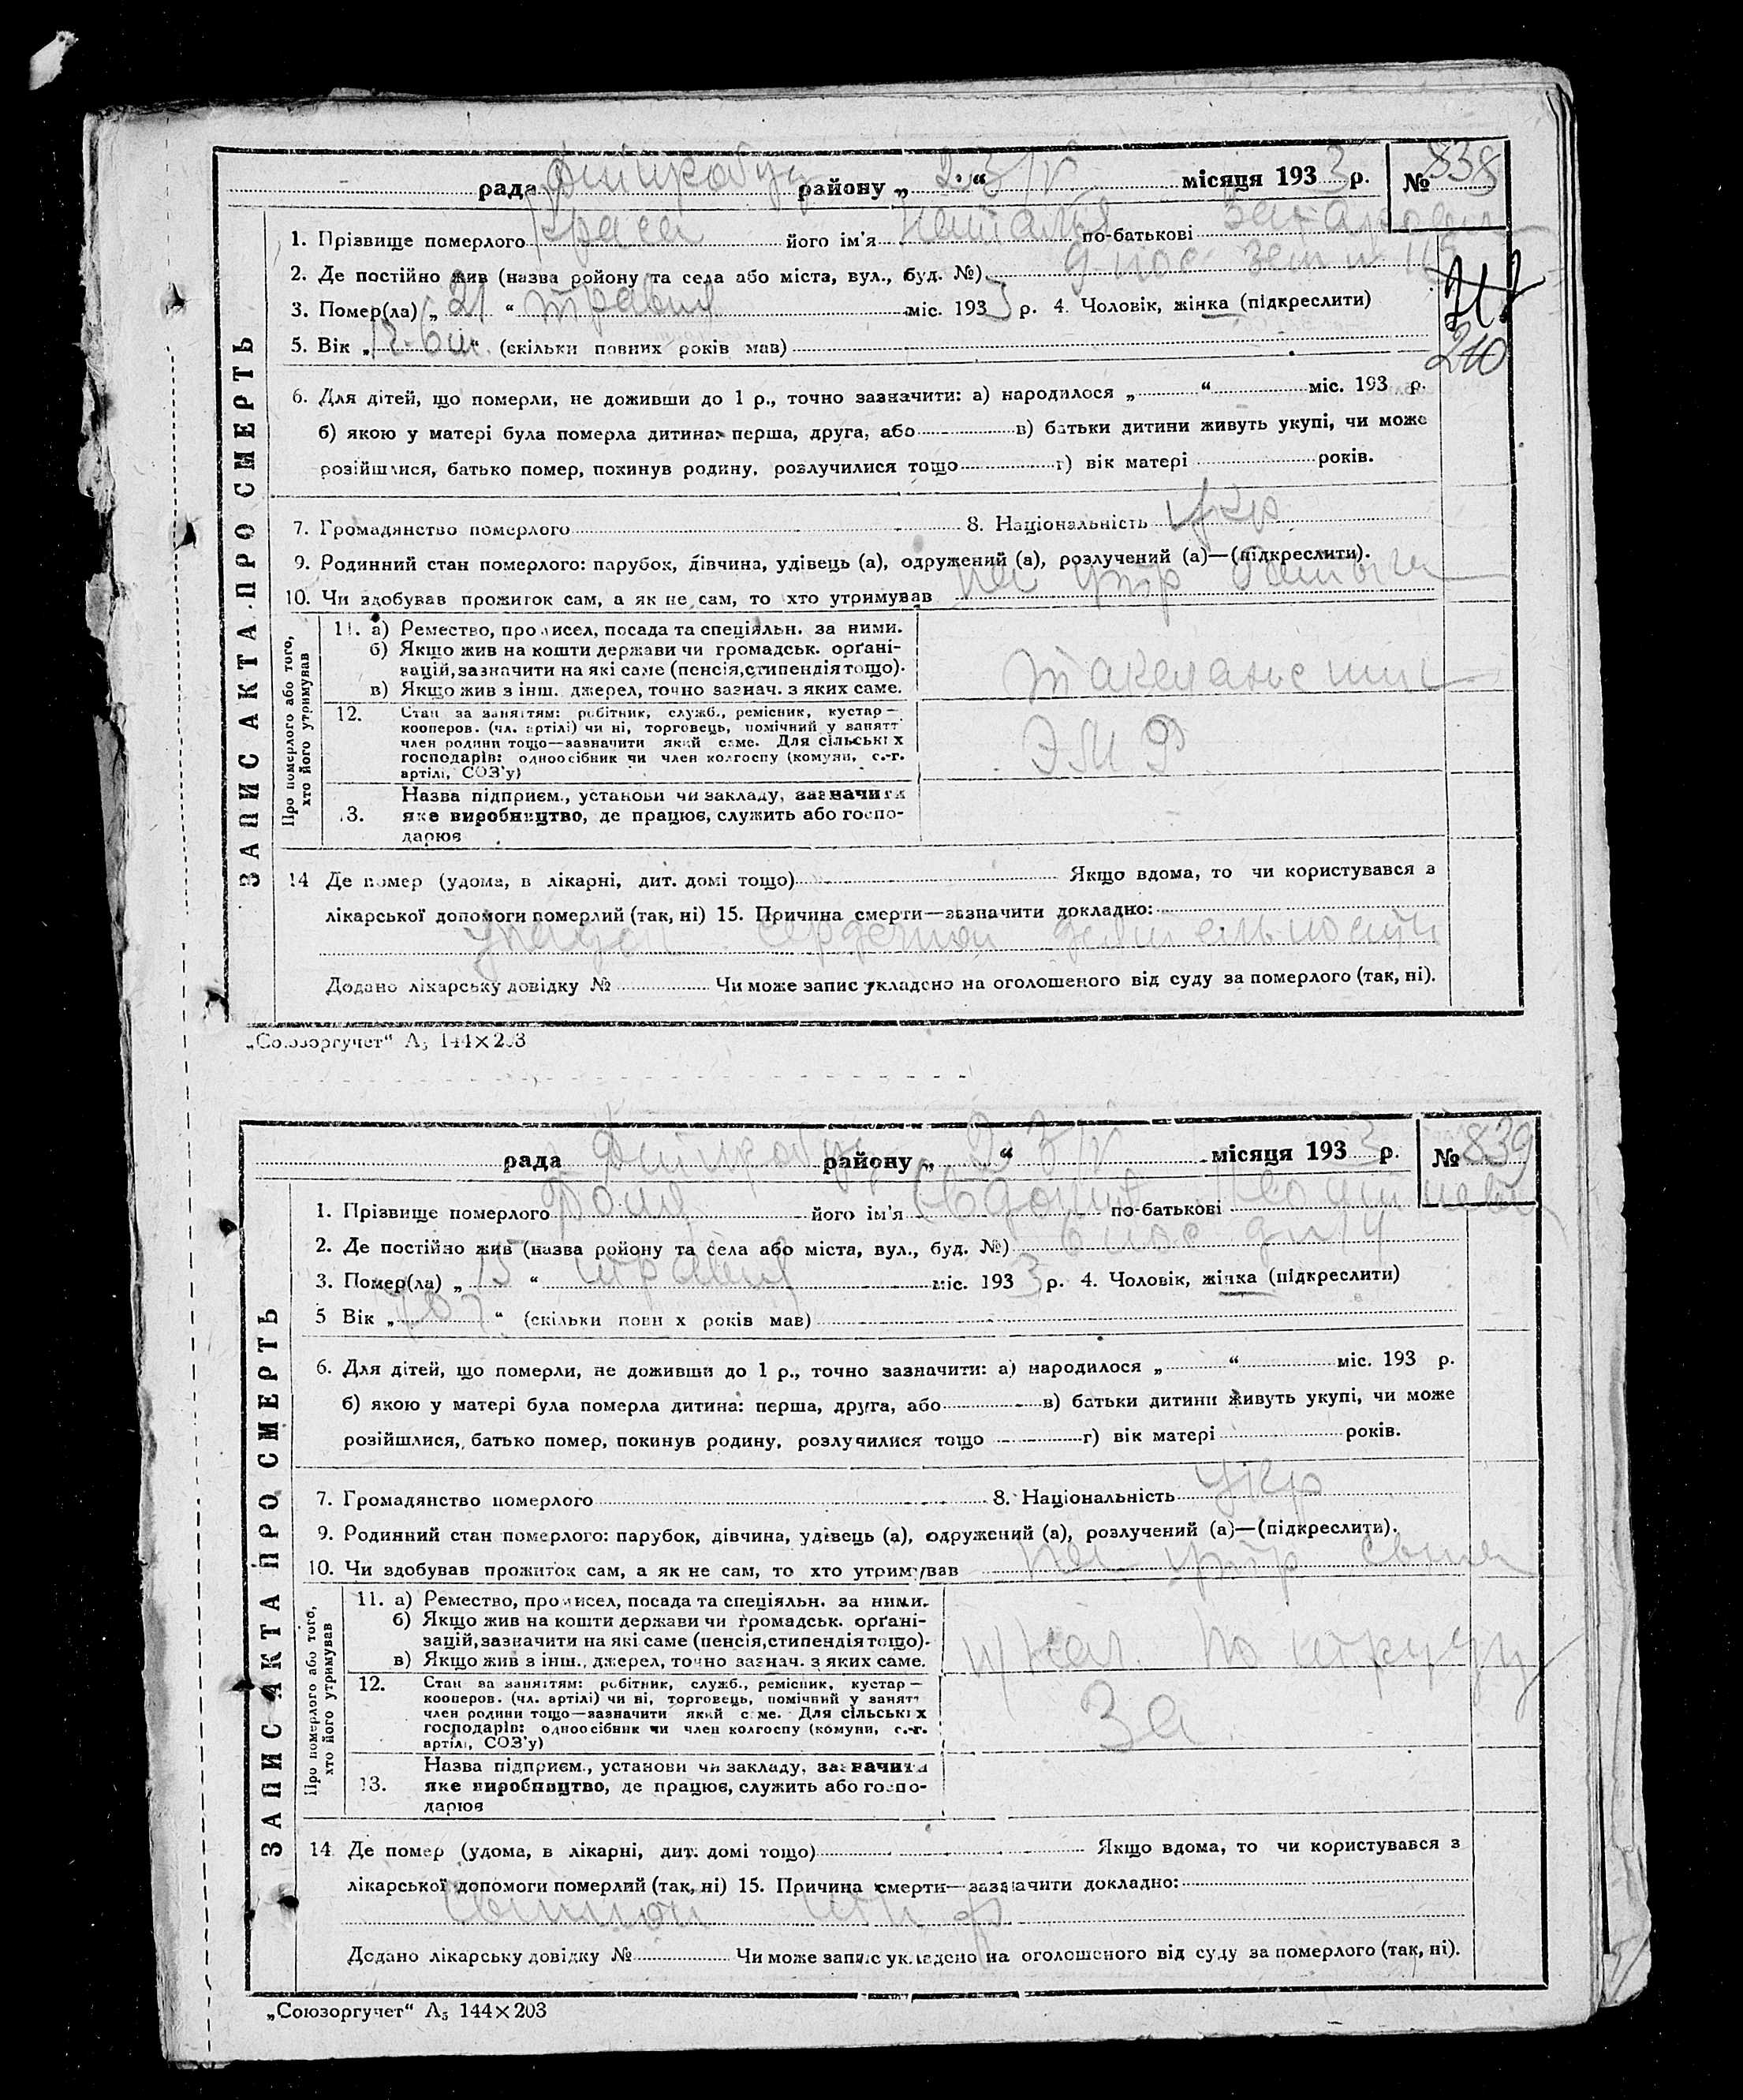 рада району „ 23/V “ місяця 1933 р. № 838
1. Прізвище померлого його ім'я по-батькові
2. Де постійно жив (назва ройону та села або міста, вул., буд. №)
3. Помер(ла) „ 21 “ травня міс. 1933 р. 4. Чоловік, жінка (підкреслити)
717
210
5. Вік „ “ (скільки повних років мав)
6. Для дітей, що померли, не доживши до 1 р., точно зазначити: а) народилося „ “ міс. 193 р.
б) якою у матері була померла дитина: перша, друга, або в) батьки дитини живуть укупі, чи може
розійшлися, батько помер, покинув родину, розлучилися тощо г) вік матері років.
7. Громадянство померлого 8. Національність укр
9. Родинний стан померлого: парубок, дівчина, удівець (а), одружений (а), розлучений (а)—(підкреслити).
10. Чи здобував прожиток сам, а як не сам, то хто утримував
ЗАПИС АКТА ПРО СМЕРТЬ
Про померлого або того, хто його утримував
11. а) Ремество, промисел, посада та спеціяльн. за ними.
б) Якщо жив на кошти держави чи громадськ. орґані-
зацій, зазначити на які саме (пенсія, стипендія тощо).
в) Якщо жив з інш. джерел, точно зазнач. з яких саме.
12. Стан за заняттям: робітник, служб., ремісник, кустар—
кооперов. (чл. артілі) чи ні, торговець, помічний у занятт
член родини тощо—зазначити який саме. Для сільських
господарів: одноосібник чи член колгоспу (комуни, с.-г.
артілі, СОЗ'у)
Назва підприєм., установи чи закладу, зазначити
13. яке виробництво, де працює, служить або госпо-
дарює
14 Де помер (удома, в лікарні, дит. домі тощо) Якщо вдома, то чи користувався з
лікарської допомоги померлий (так, ні) 15. Причина смерти—зазначити докладно:
упадок сердечной деятельности
Додано лікарську довідку № Чи може запис укладено на оголошеного від суду за померлого (так, ні).
„Союзоргучет“ А₅ 144×203
рада району „ 23/V “ місяця 1933 р. № 839
1. Прізвище померлого його ім'я по-батькові
2. Де постійно жив (назва ройону та села або міста, вул., буд. №)
3. Помер(ла) „ 15 “ травня міс. 1933 р. 4. Чоловік, жінка (підкреслити)
5 Вік „ “ (скільки повних років мав)
6. Для дітей, що померли, не доживши до 1 р., точно зазначити: а) народилося „ “ міс. 193 р.
б) якою у матері була померла дитина: перша, друга, або в) батьки дитини живуть укупі, чи може
розійшлися, батько помер, покинув родину, розлучилися тощо г) вік матері років.
7. Громадянство померлого 8. Національність укр
9. Родинний стан померлого: парубок, дівчина, удівець (а), одружений (а), розлучений (а)—(підкреслити).
10. Чи здобував прожиток сам, а як не сам, то хто утримував
ЗАПИС АКТА ПРО СМЕРТЬ
Про померлого або того, хто його утримував
11. а) Ремество, промисел, посада та спеціяльн. за ними.
б) Якщо жив на кошти держави чи громадськ. орґані-
зацій, зазначити на які саме (пенсія, стипендія тощо).
в) Якщо жив з інш. джерел, точно зазнач. з яких саме.
12. Стан за заняттям: робітник, служб., ремісник, кустар—
кооперов. (чл. артілі) чи ні, торговець, помічний у занятт
член родини тощо—зазначити який саме. Для сільських
господарів: одноосібник чи член колгоспу (комуни, с.-г.
артілі, СОЗ'у)
Назва підприєм., установи чи закладу, зазначити
13. яке виробництво, де працює, служить або госпо-
дарює
14. Де помер (удома, в лікарні, дит. домі тощо) Якщо вдома, то чи користувався з
лікарської допомоги померлий (так, ні) 15. Причина смерти—зазначити докладно:
Додано лікарську довідку № Чи може запис укладено на оголошеного від суду за померлого (так, ні).
„Союзоргучет“ А₅ 144×203